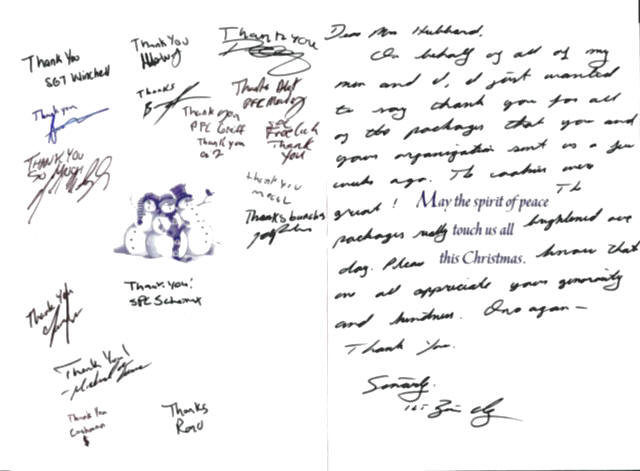 Thank You
SGT Winchell
Thank You
Thank You
Thank you
Thanks
Thanks
PFC
Thank you
PFC
Thank you
SPC
Thank
You
THANK YOU
SO MUCH
thank you
Thanks bunches
Thank You
Thank You!
SPC
Thank You!
Thank You
Thanks
Dear Mrs Hubbard,
On behalf of all of my
men and I, I just wanted
to say thank you for all
of the packages that you and
your organization sent us a few
weeks ago. The cookies were
great! May the spirit of peace The
packages really touch us all brightened our
day. Please this Christmas. know that
we all appreciate your generosity
and kindness. Once again -
Thank You.
Sincerely,